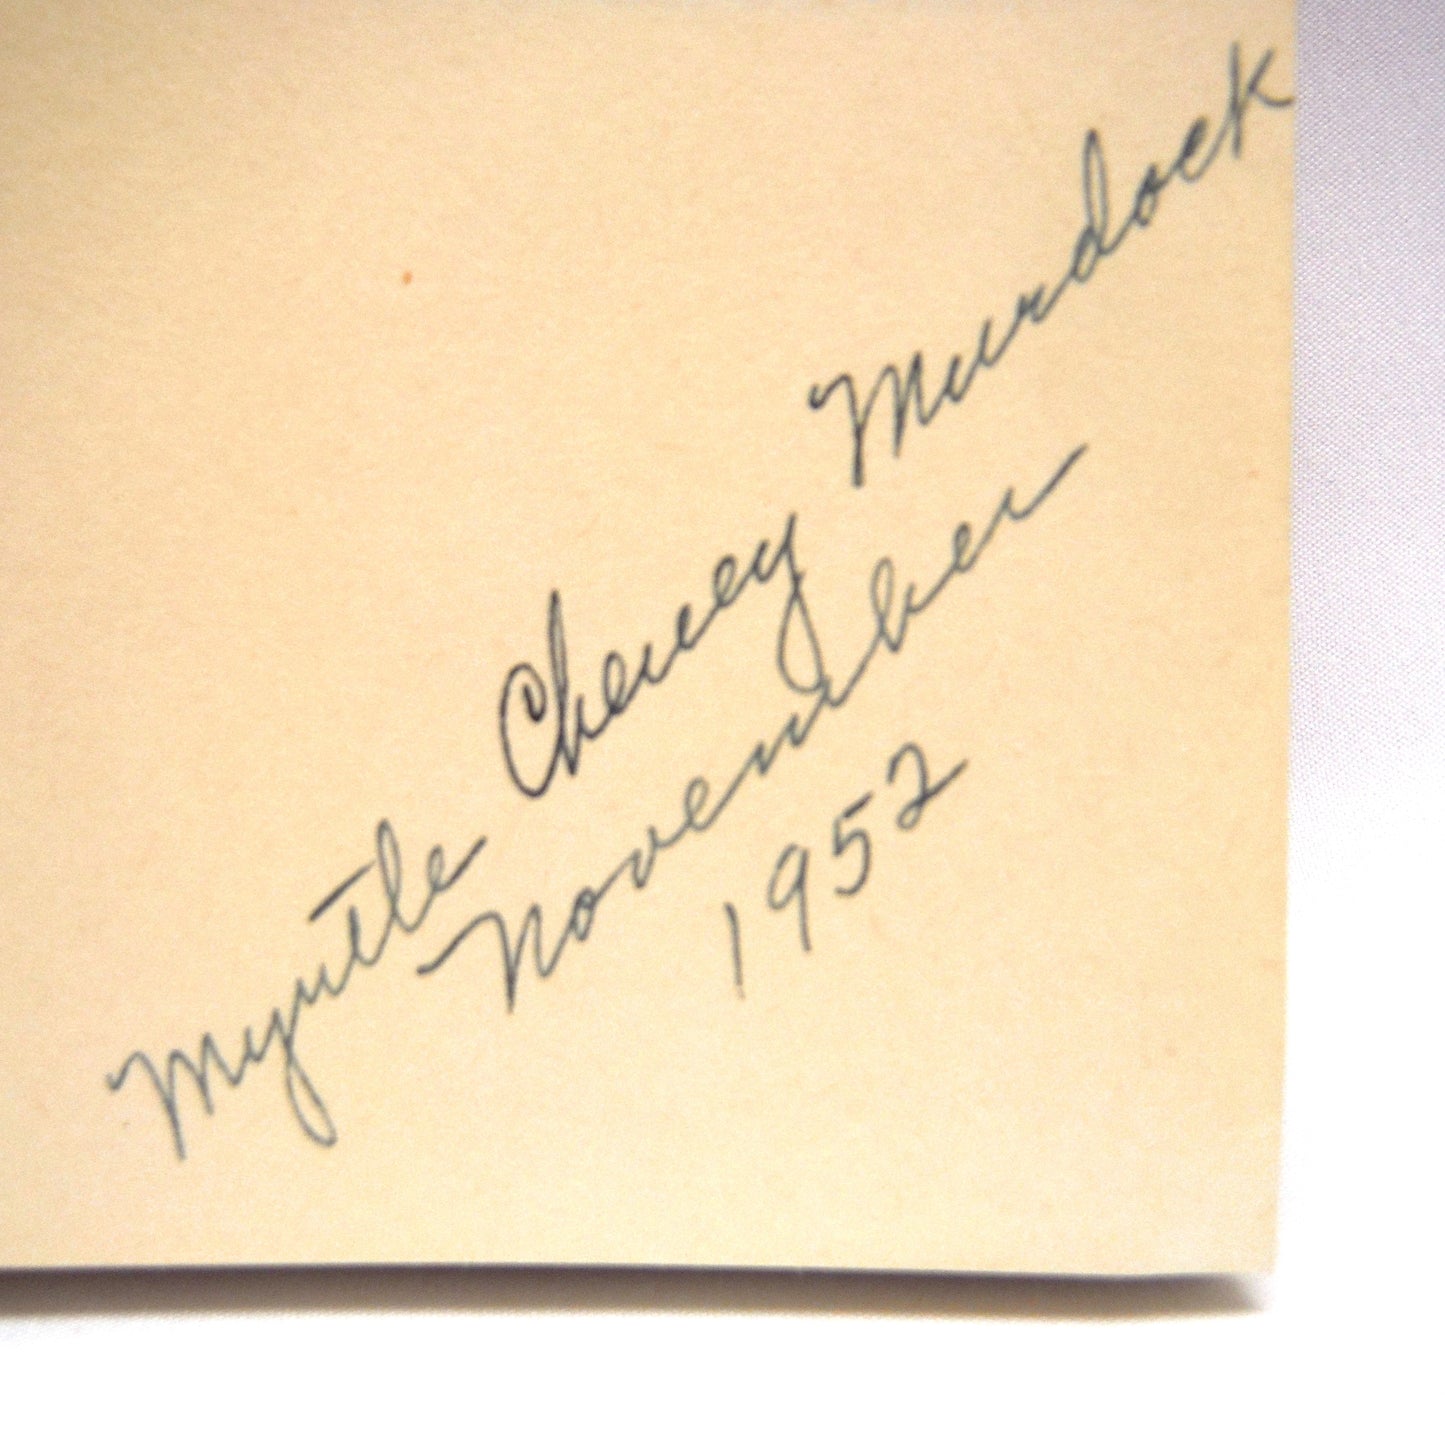 Myrtle Cheney Murdock
November
1952